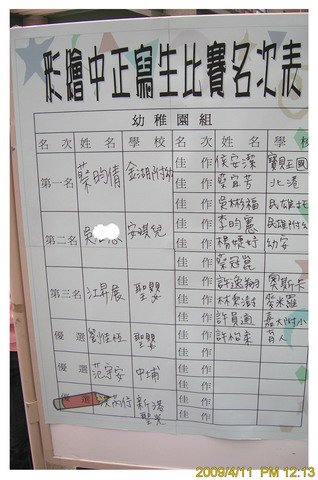 形繪中正寫生比賽名次表
幼稚園組
名次 姓名 學校 名次 姓名 學校
第一名 蔡昀倩 金湖附幼 佳作 侯安潔 寶貝王國
佳作 蔡宜芳 北港
佳作 吳彬福 民雄托
第二名 安琪兒 佳作 李昀 民雄附幼
佳作 楊婕妤 幼安
佳作 蔡冠
第三名 江昇展 聖嬰 佳作 許 奧斯卡
佳作 林 愛米羅
優選 劉 聖嬰 佳作 許員通 嘉大附小
佳作 許 育人
優選 范守安 中埔 佳作
優選 新港 佳作
聖光 佳作
2009/4/11 PM 12:13